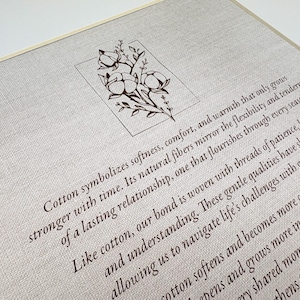 Cotton symbolizes softness, comfort, and warmth that only grows
stronger with time. Its natural fibers mirror the flexibility and
of a lasting relationship, one that flourishes through every
Like cotton, our bond is woven with threads of patience,
and understanding. These gentle qualities have
allowing us to navigate life's challenges with
cotton softens and becomes more
and grows more in
shared mom